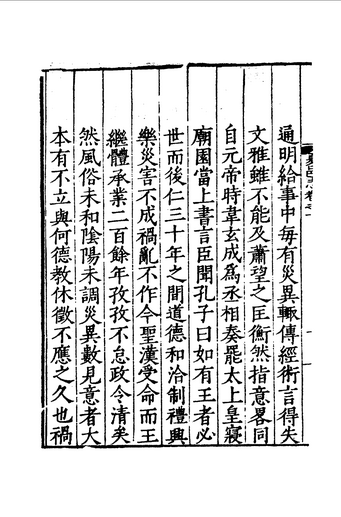 通明給事中每有災異輒傳經術言得失
文雅雖不能及蕭望之匡衡然指意畧同
自元帝時韋玄成爲丞相奏罷太上皇寢
廟園當上書言臣聞孔子曰如有王者必
世而後仁三十年之間道德和洽制禮興
樂災害不成禍亂不作今聖漢受命而王
繼體承業二百餘年孜孜不怠政令清矣
然風俗未和陰陽未調災異數見意者大
本有不立與何德教休徵不應之久也禍